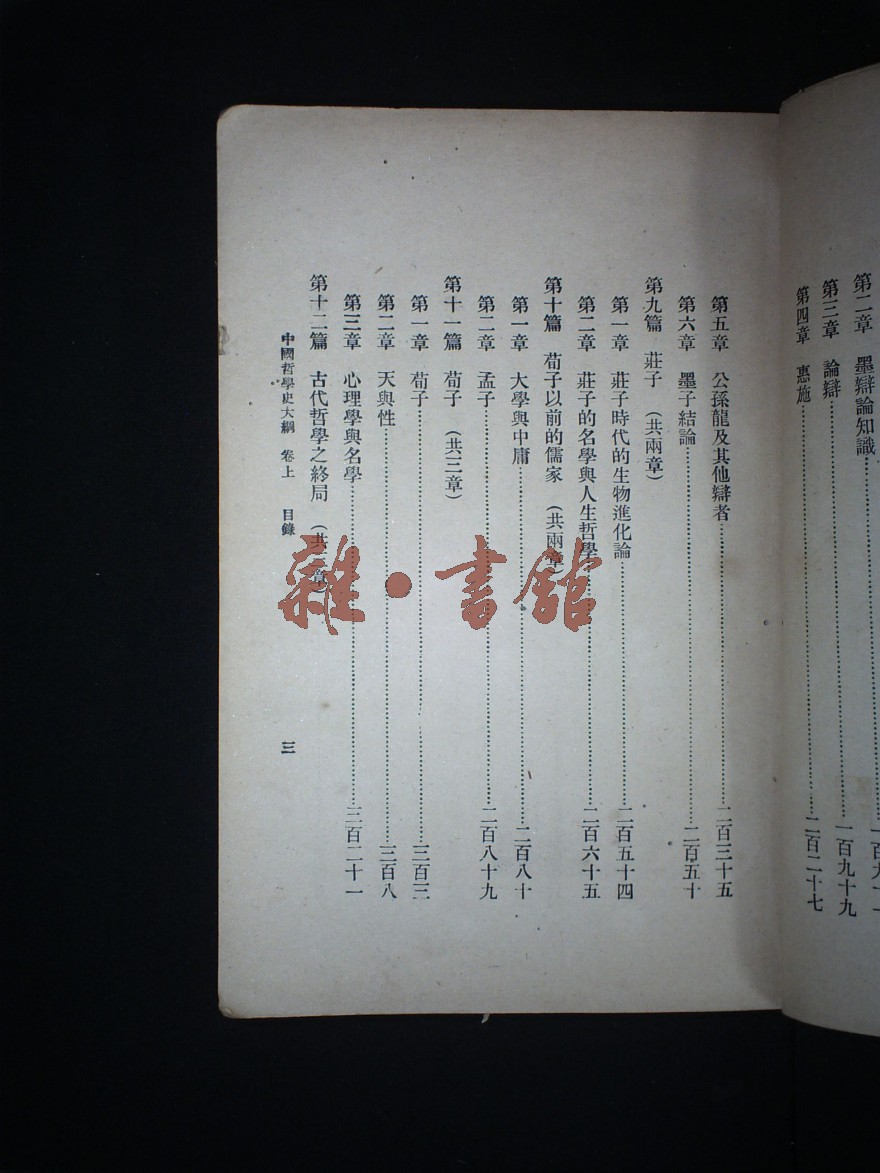 第二章　墨辯論知識
第三章　論辯…………一百九十九
第四章　惠施…………二百二十七
第五章　公孫龍及其他辯者…………二百三十五
第六章　墨子結論…………二百五十
第九篇　莊子　（共兩章）
第一章　莊子時代的生物進化論…………二百五十四
第二章　莊子的名學與人生哲學…………二百六十五
第十篇　荀子以前的儒家　（共兩章）
第一章　大學與中庸…………二百八十
第二章　孟子…………二百八十九
第十一篇　荀子　（共三章）
第一章　荀子…………三百三
第二章　天與性…………三百八
第三章　心理學與名學…………三百二十一
第十二篇　古代哲學之終局　（共三章）
中國哲學史大綱　卷上　目錄　三
雜·書館